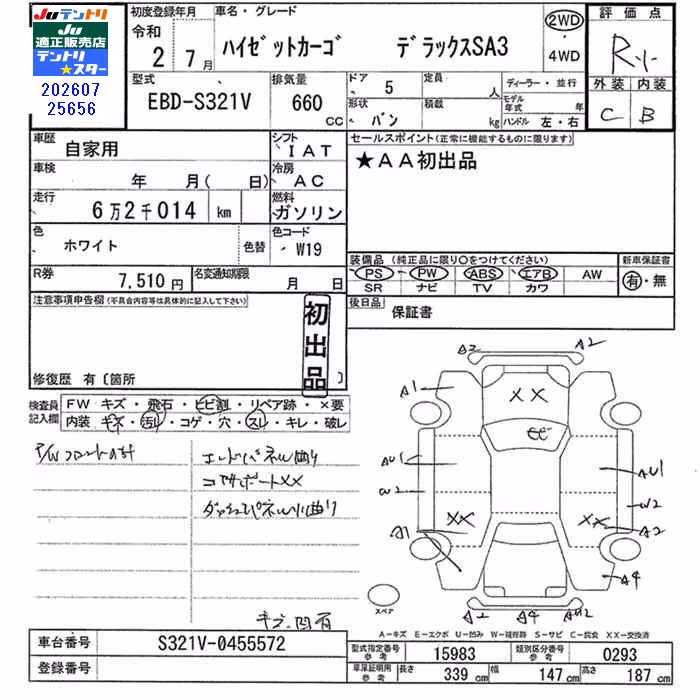 Juテントリ
JU
適正販売店
テントリ
★スター
202607
25656
初度登録年月
令和
2 7月
車名・グレード
ハイゼットカーゴ デラックスSA3
2WD
・
4WD
評価点
R
外装 内装
C B
型式
EBD-S321V
排気量
660
CC
ドア
5
形状
バン
定員
人
積載
kg
ディーラー・並行
モデル年式
年
ハンドル 左・右
車歴
自家用
シフト
IAT
車検
年 月( 日)
冷房
AC
走行
6万2千014 km
燃料
ガソリン
色
ホワイト
色替
色コード
W19
R券
7,510円
名変通知期限
月 日
セールスポイント(正常に機能するものに限ります)
★AA初出品
装備品 (純正品に限り○をつけてください)
PS PW ABS エアB AW
SR ナビ TV カワ
新車保証書
有・無
後日品
保証書
注意事項申告欄(不具合内容等は具体的に記入して下さい)
初出品
修復歴 有〔箇所 〕
検査員
記入欄
FW キズ・飛石・ヒビ割・リペア跡・×要
内装 キズ・汚れ・コゲ・穴・スレ・キレ・破レ
エンドパネル曲り
コアサポートXX
A2 A2
A1
XX
AU1
AU1
W2
W2
XX
XX
A2
A1
A4
A2 A4
スペア
A-キズ E-エクボ U-凹み W-補修跡 S-サビ C-腐食 XX-交換済
車台番号
S321V-0455572
登録番号
型式指定番号
参考
15983
類別区分番号
参考
0293
車庫証明用
参考
長さ
339 cm
幅
147 cm
高さ
187 cm